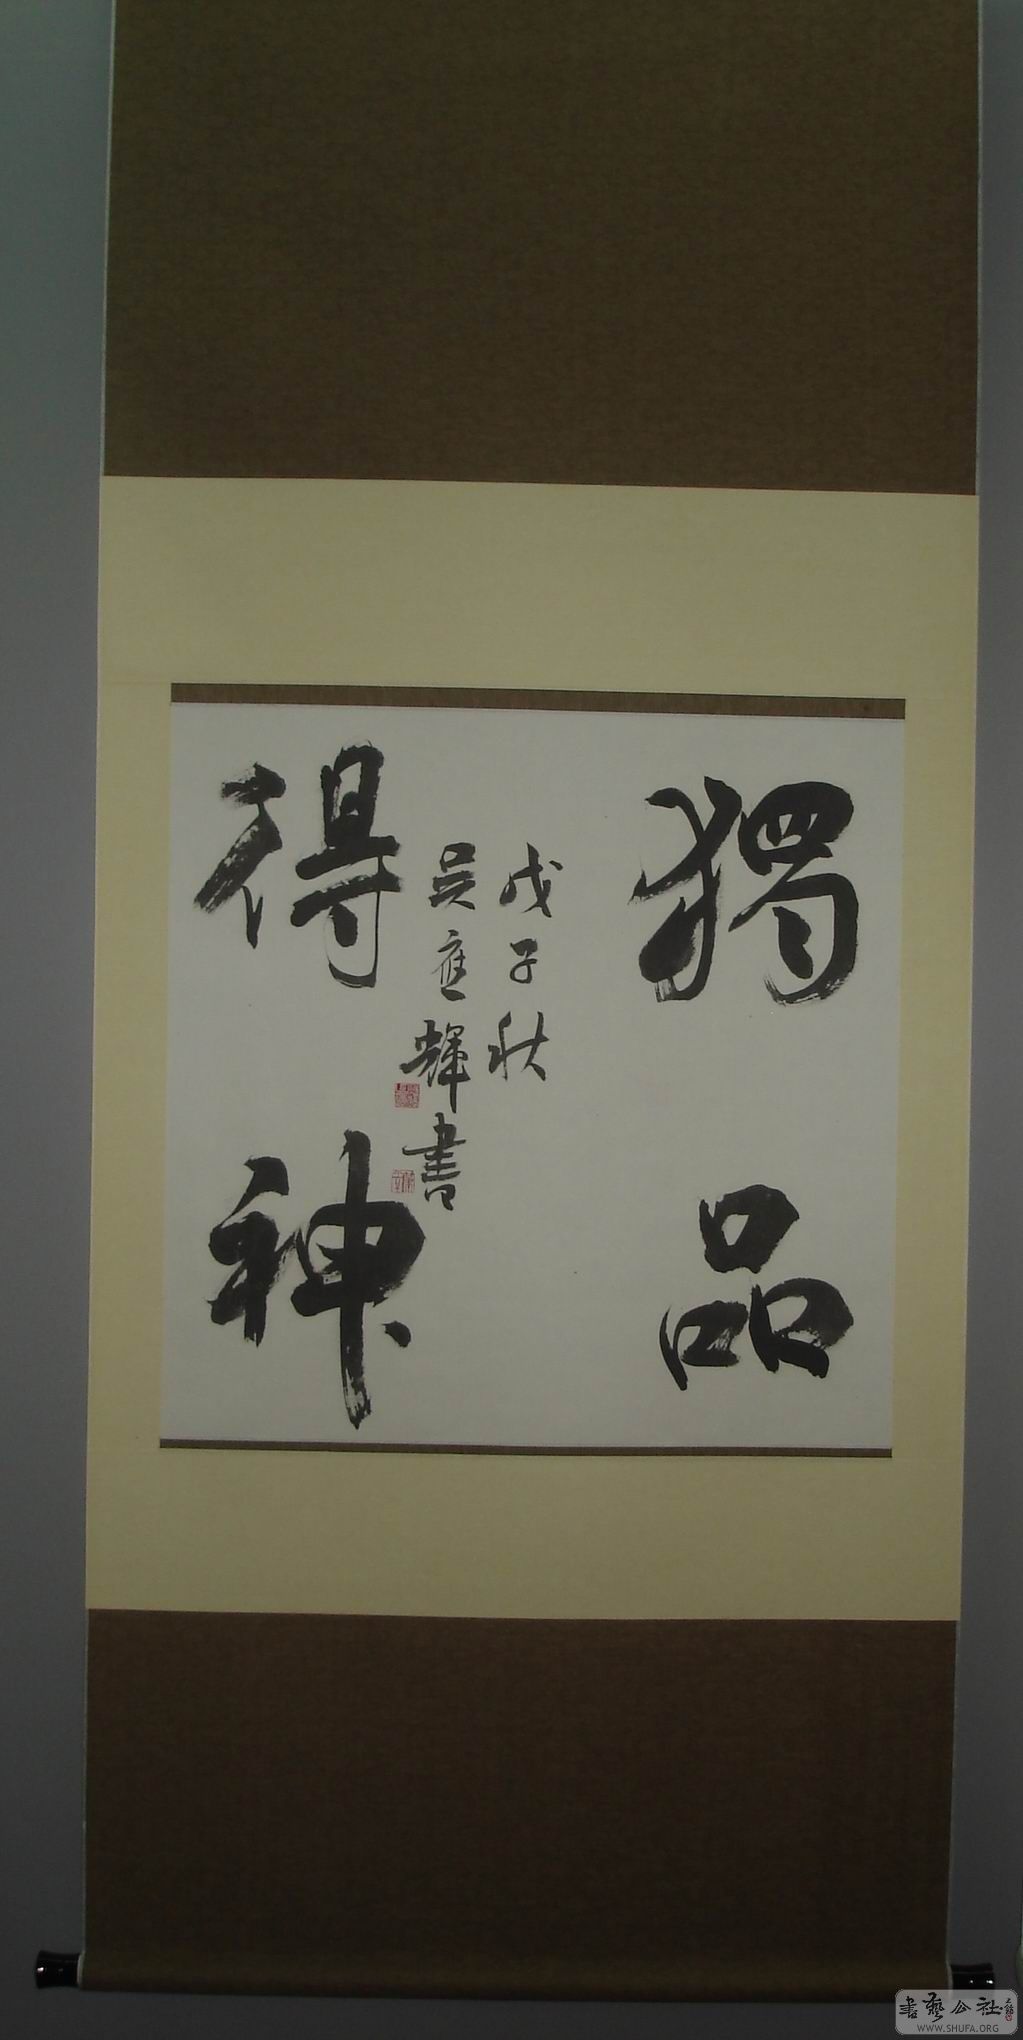 獨品
得神
戊子秋
吳應輝書
書藝公社
WWW.SHUFA.ORG